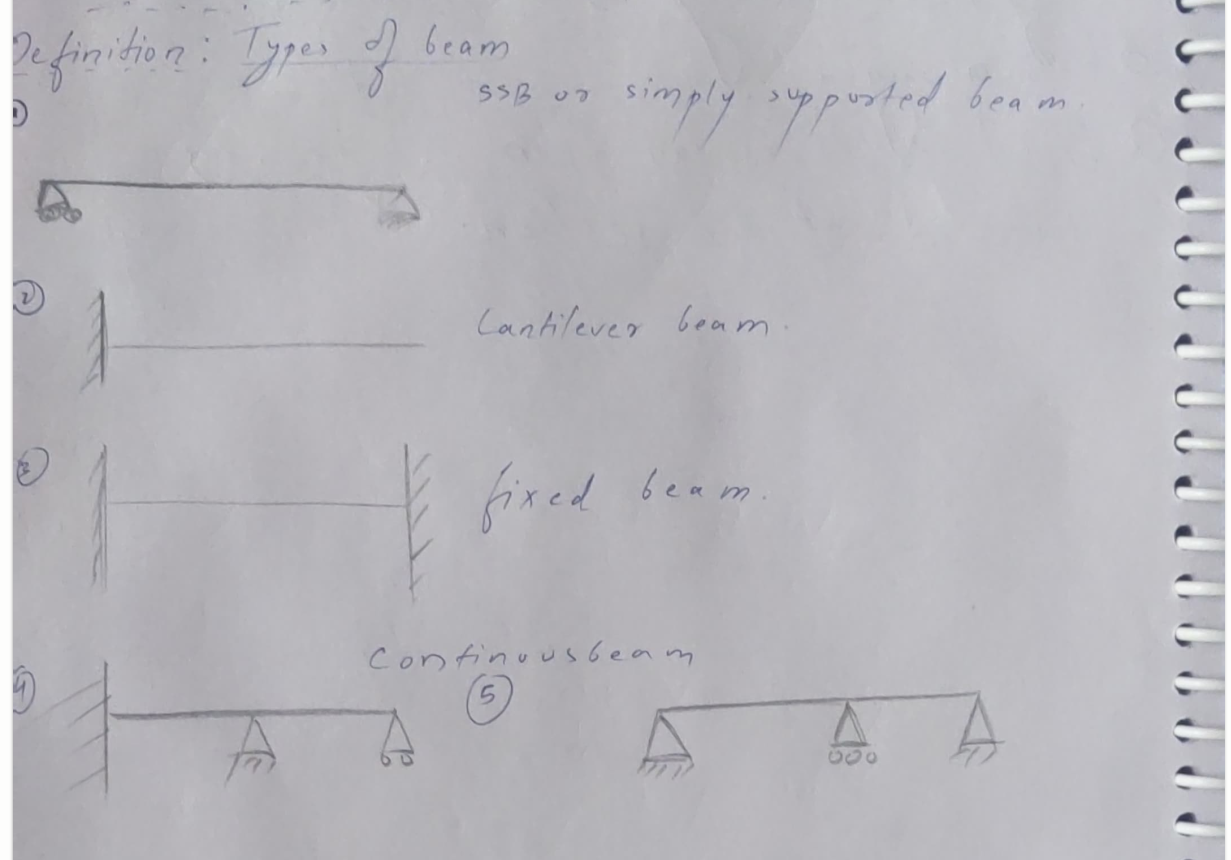 Definition: Types of beam
① SSB or simply supported beam.
② Cantilever beam.
③ fixed beam.
Continuousbeam
④ ⑤